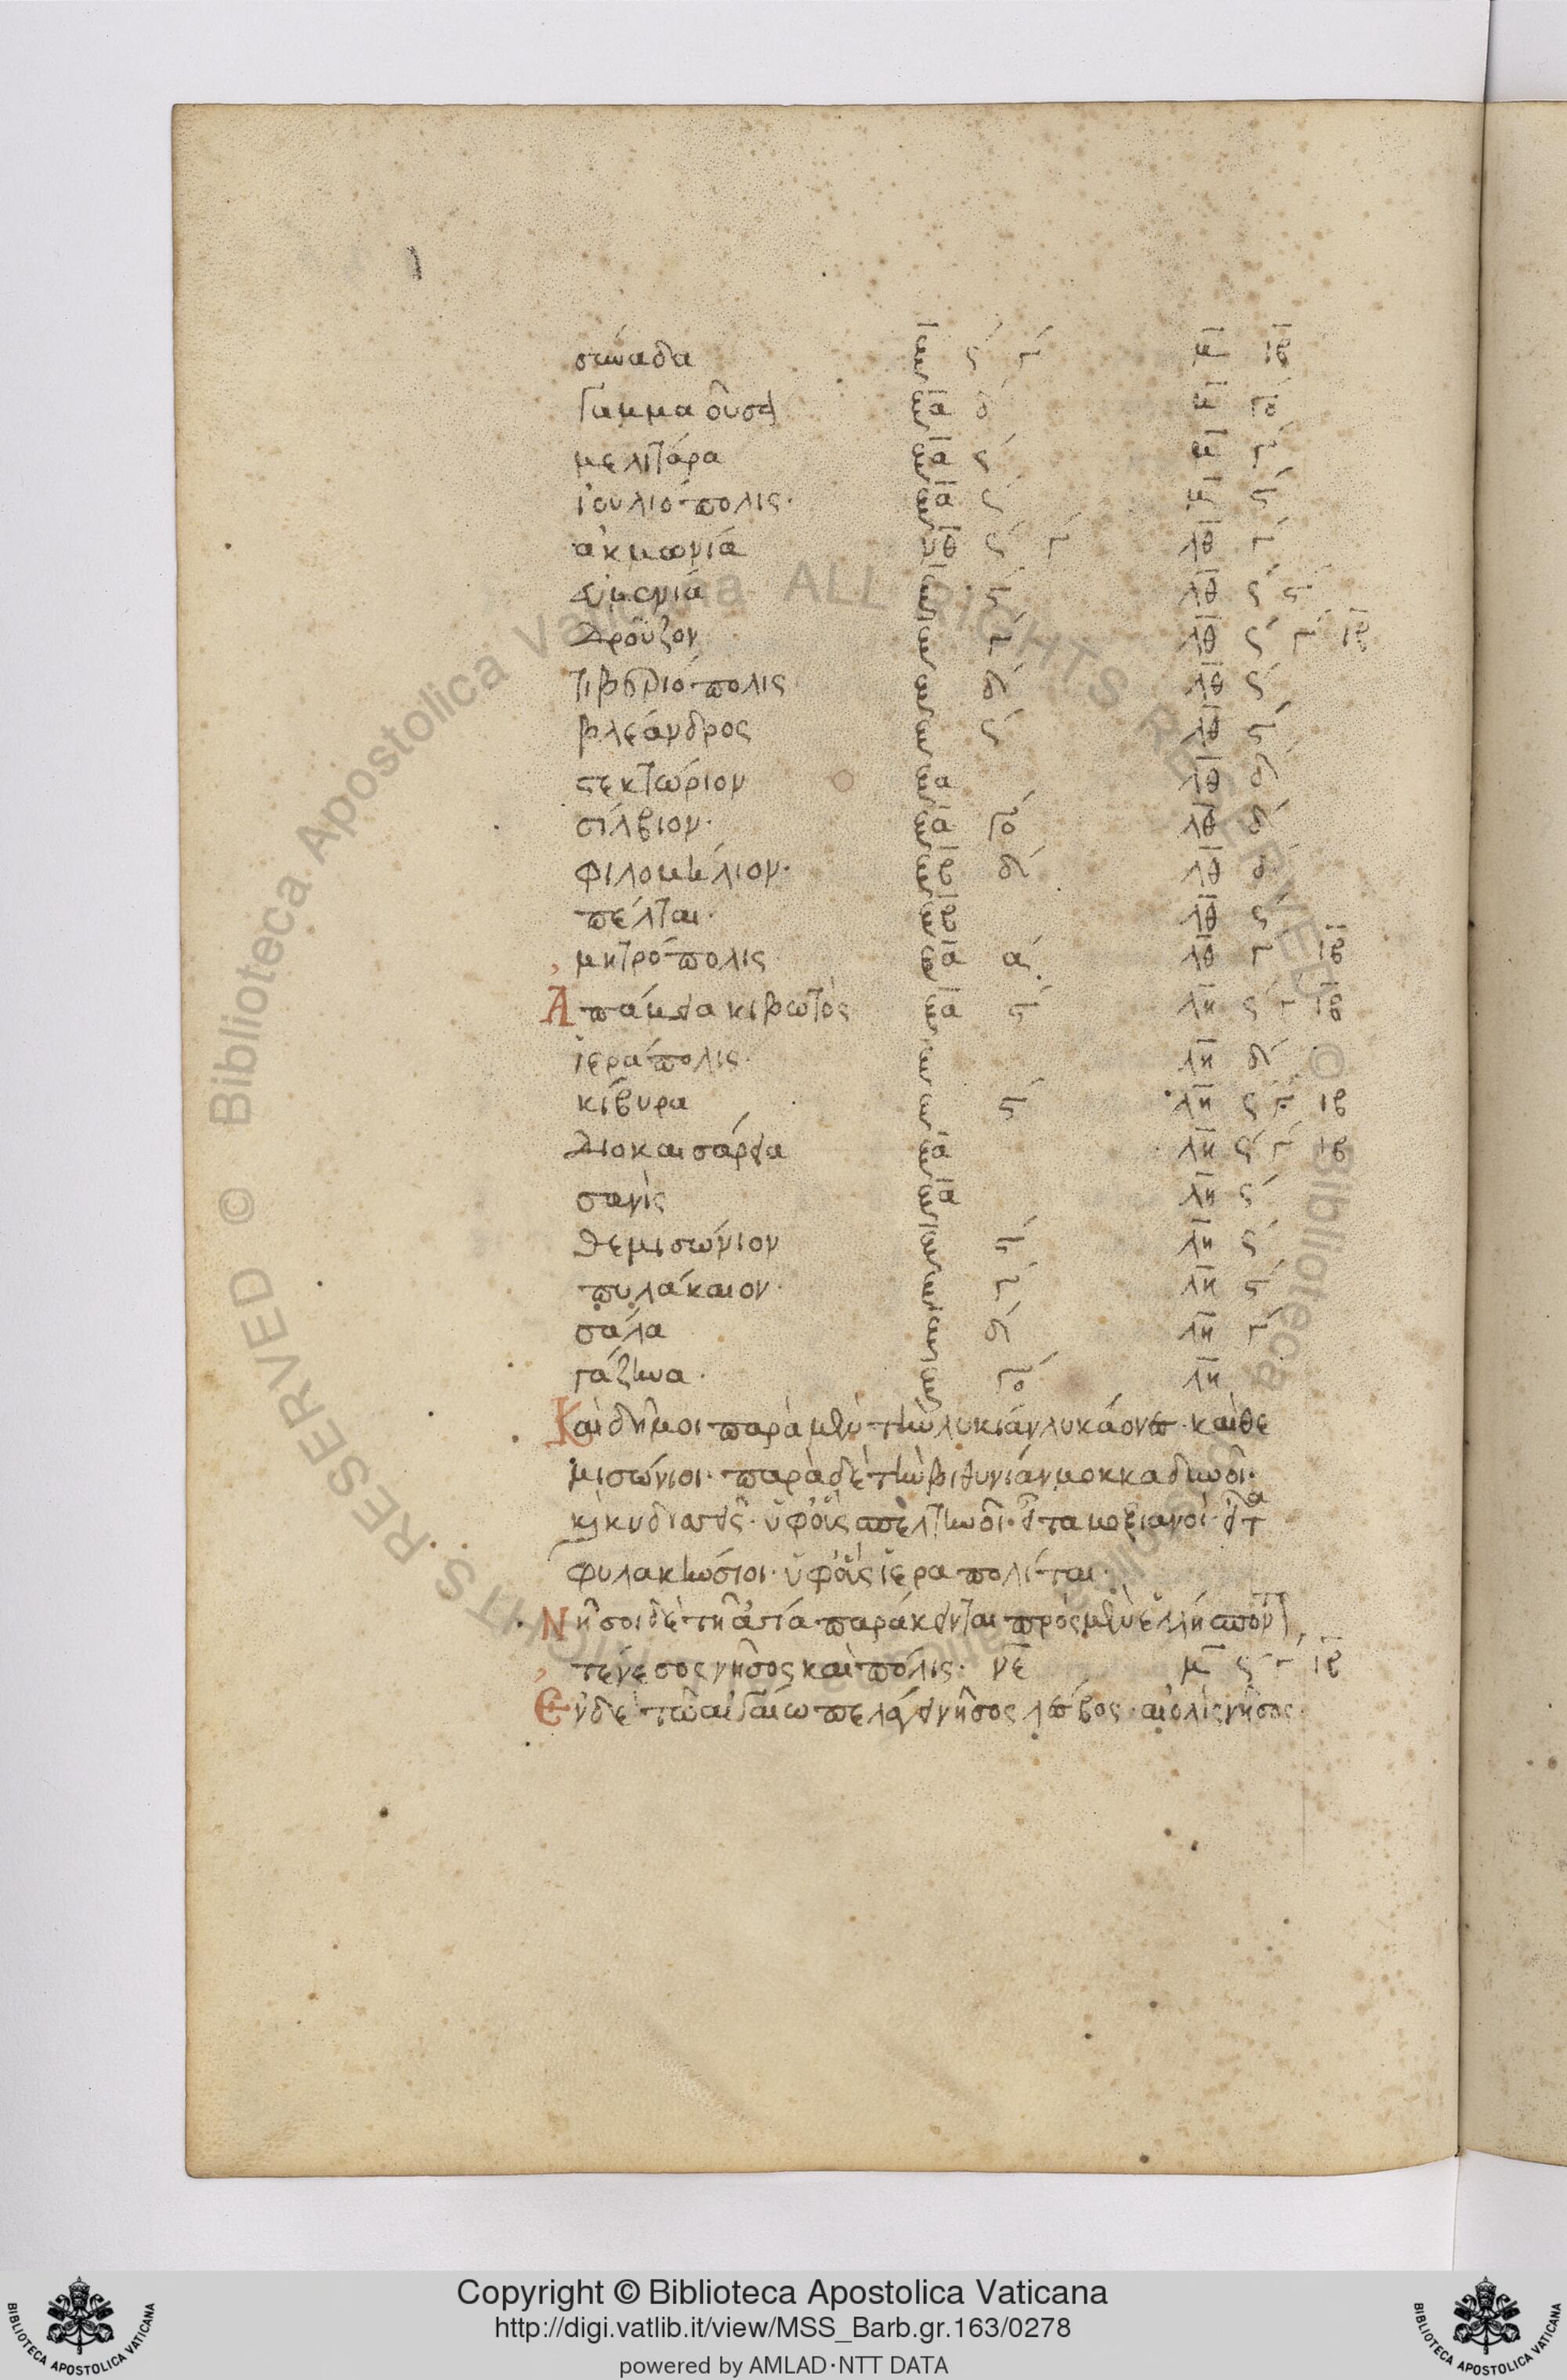 σύναδα ξ ϛʹ γʹ μ ιβ
Γαμμαουσα ξα δʹ μ γο
μελιτάρα ξα ϛʹ μ γʹ
ἰουλιόπολις· ξα ϛʹ μ ϛʹ
ἀκμωνία νθ ϛʹ γʹ λθ γʹ
εὐμενία ξ ϛʹ λθ ϛʹ ϛʹ
Δροῦζον ξ γʹ λθ ϛʹ γʹ ιβ
Τιβεριόπολις ξ δʹ λθ ϛʹ
βλέανδρος ξ ϛʹ λθ ϛʹ
στεκτώριον ξα λθ δʹ
σίλβιον· ξα γο λθ δʹ
φιλομήλιον· ξβ δʹ λθ δʹ
πέλται· ξβ λθ ϛʹ
μητρόπολις ξα λθ γʹ ιβ
Ἀπάμεια κιβωτὸς ξα ϛʹ λη ϛʹ γʹ ιβ
ἱεράπολις· ξ λη δʹ
κίβυρα ξ ϛʹ λη ϛʹ γʹ ιβ
Διοκαισάρεια ξα λη ϛʹ γʹ ιβ
σανὶς ξα λη ϛʹ
θεμισώνιον ξ ϛʹ λη ϛʹ
πυλάκαιον· ξ γʹ λη ϛʹ
σάλα ξ δʹ λη γʹ
γάζηνα· ξ γο λη
Καὶ δῆμοι παρὰ μὲν τὴν λυκίαν λυκάονες· καὶ θε
μισώνιοι· παρὰ δὲ τὴν βιθυνίαν μοκκαδηνοὶ·
καὶ κυδισσεῖς· ὑφ' οὓς πελτηνοὶ· εἶτα μοξιανοί· εἶτα
φυλακήνσιοι· ὑφ' οὓς ἱεραπολίται·
Νῆσοι δὲ τῆ ἀσία παράκεινται πρὸς μὲν ἑλλησπόντ
τένεσος νῆσος καὶ πόλις· νε μ ϛʹ γʹ ιβ
Ἐν δὲ τῶ αἰγαίω πελάγει νῆσος λέσβος· αἰολὶς νῆσος·
Copyright © Biblioteca Apostolica Vaticana
http://digi.vatlib.it/view/MSS_Barb.gr.163/0278
powered by AMLAD·NTT DATA